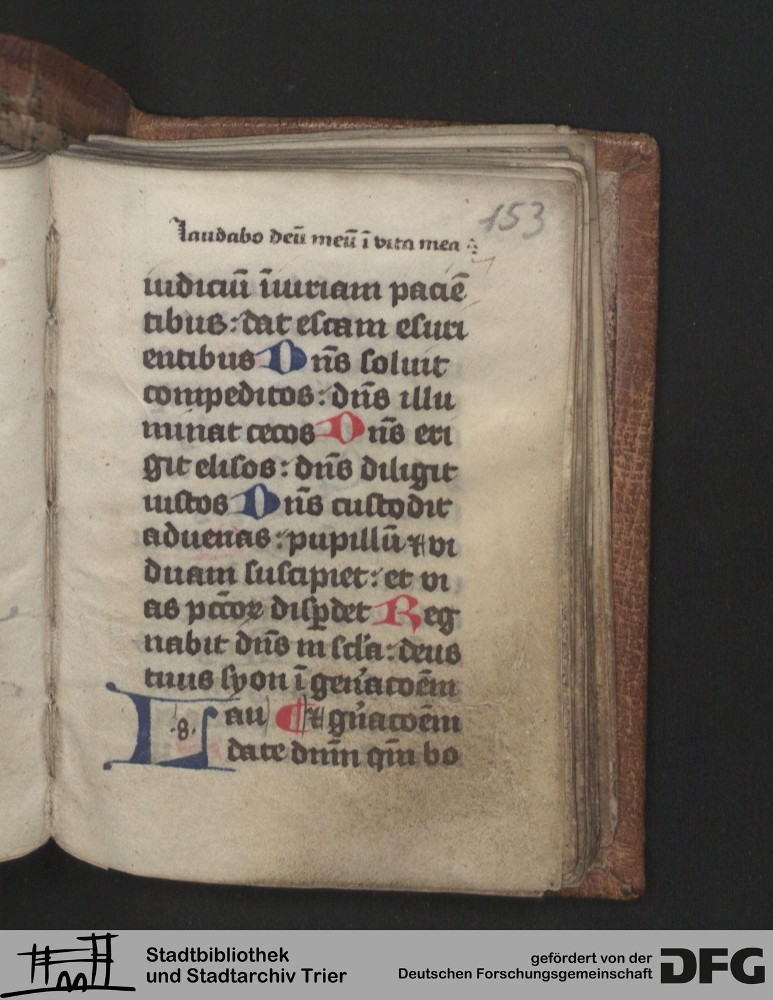 153
laudabo deū meū ī vita mea
iudiciū īiuriam paciē
tibus : dat escam esuri
entibus Dn̄s soluit
compeditos : dn̄s illu
minat cecos Dn̄s eri
git elisos : dn̄s diligit
iustos Dn̄s custodit
aduenas : pupillū ⁊ vi
duam suscipiet : et vi
as pc̄coꝝ disꝑdet Reg
nabit dn̄s in sc̄la : deus
tuus syon ī gen̄acoēm
⁊ gn̄acoēm
Lau
.8.
date dnm̄ qm̄ bo
Stadtbibliothek
und Stadtarchiv Trier
gefördert von der
Deutschen Forschungsgemeinschaft
DFG